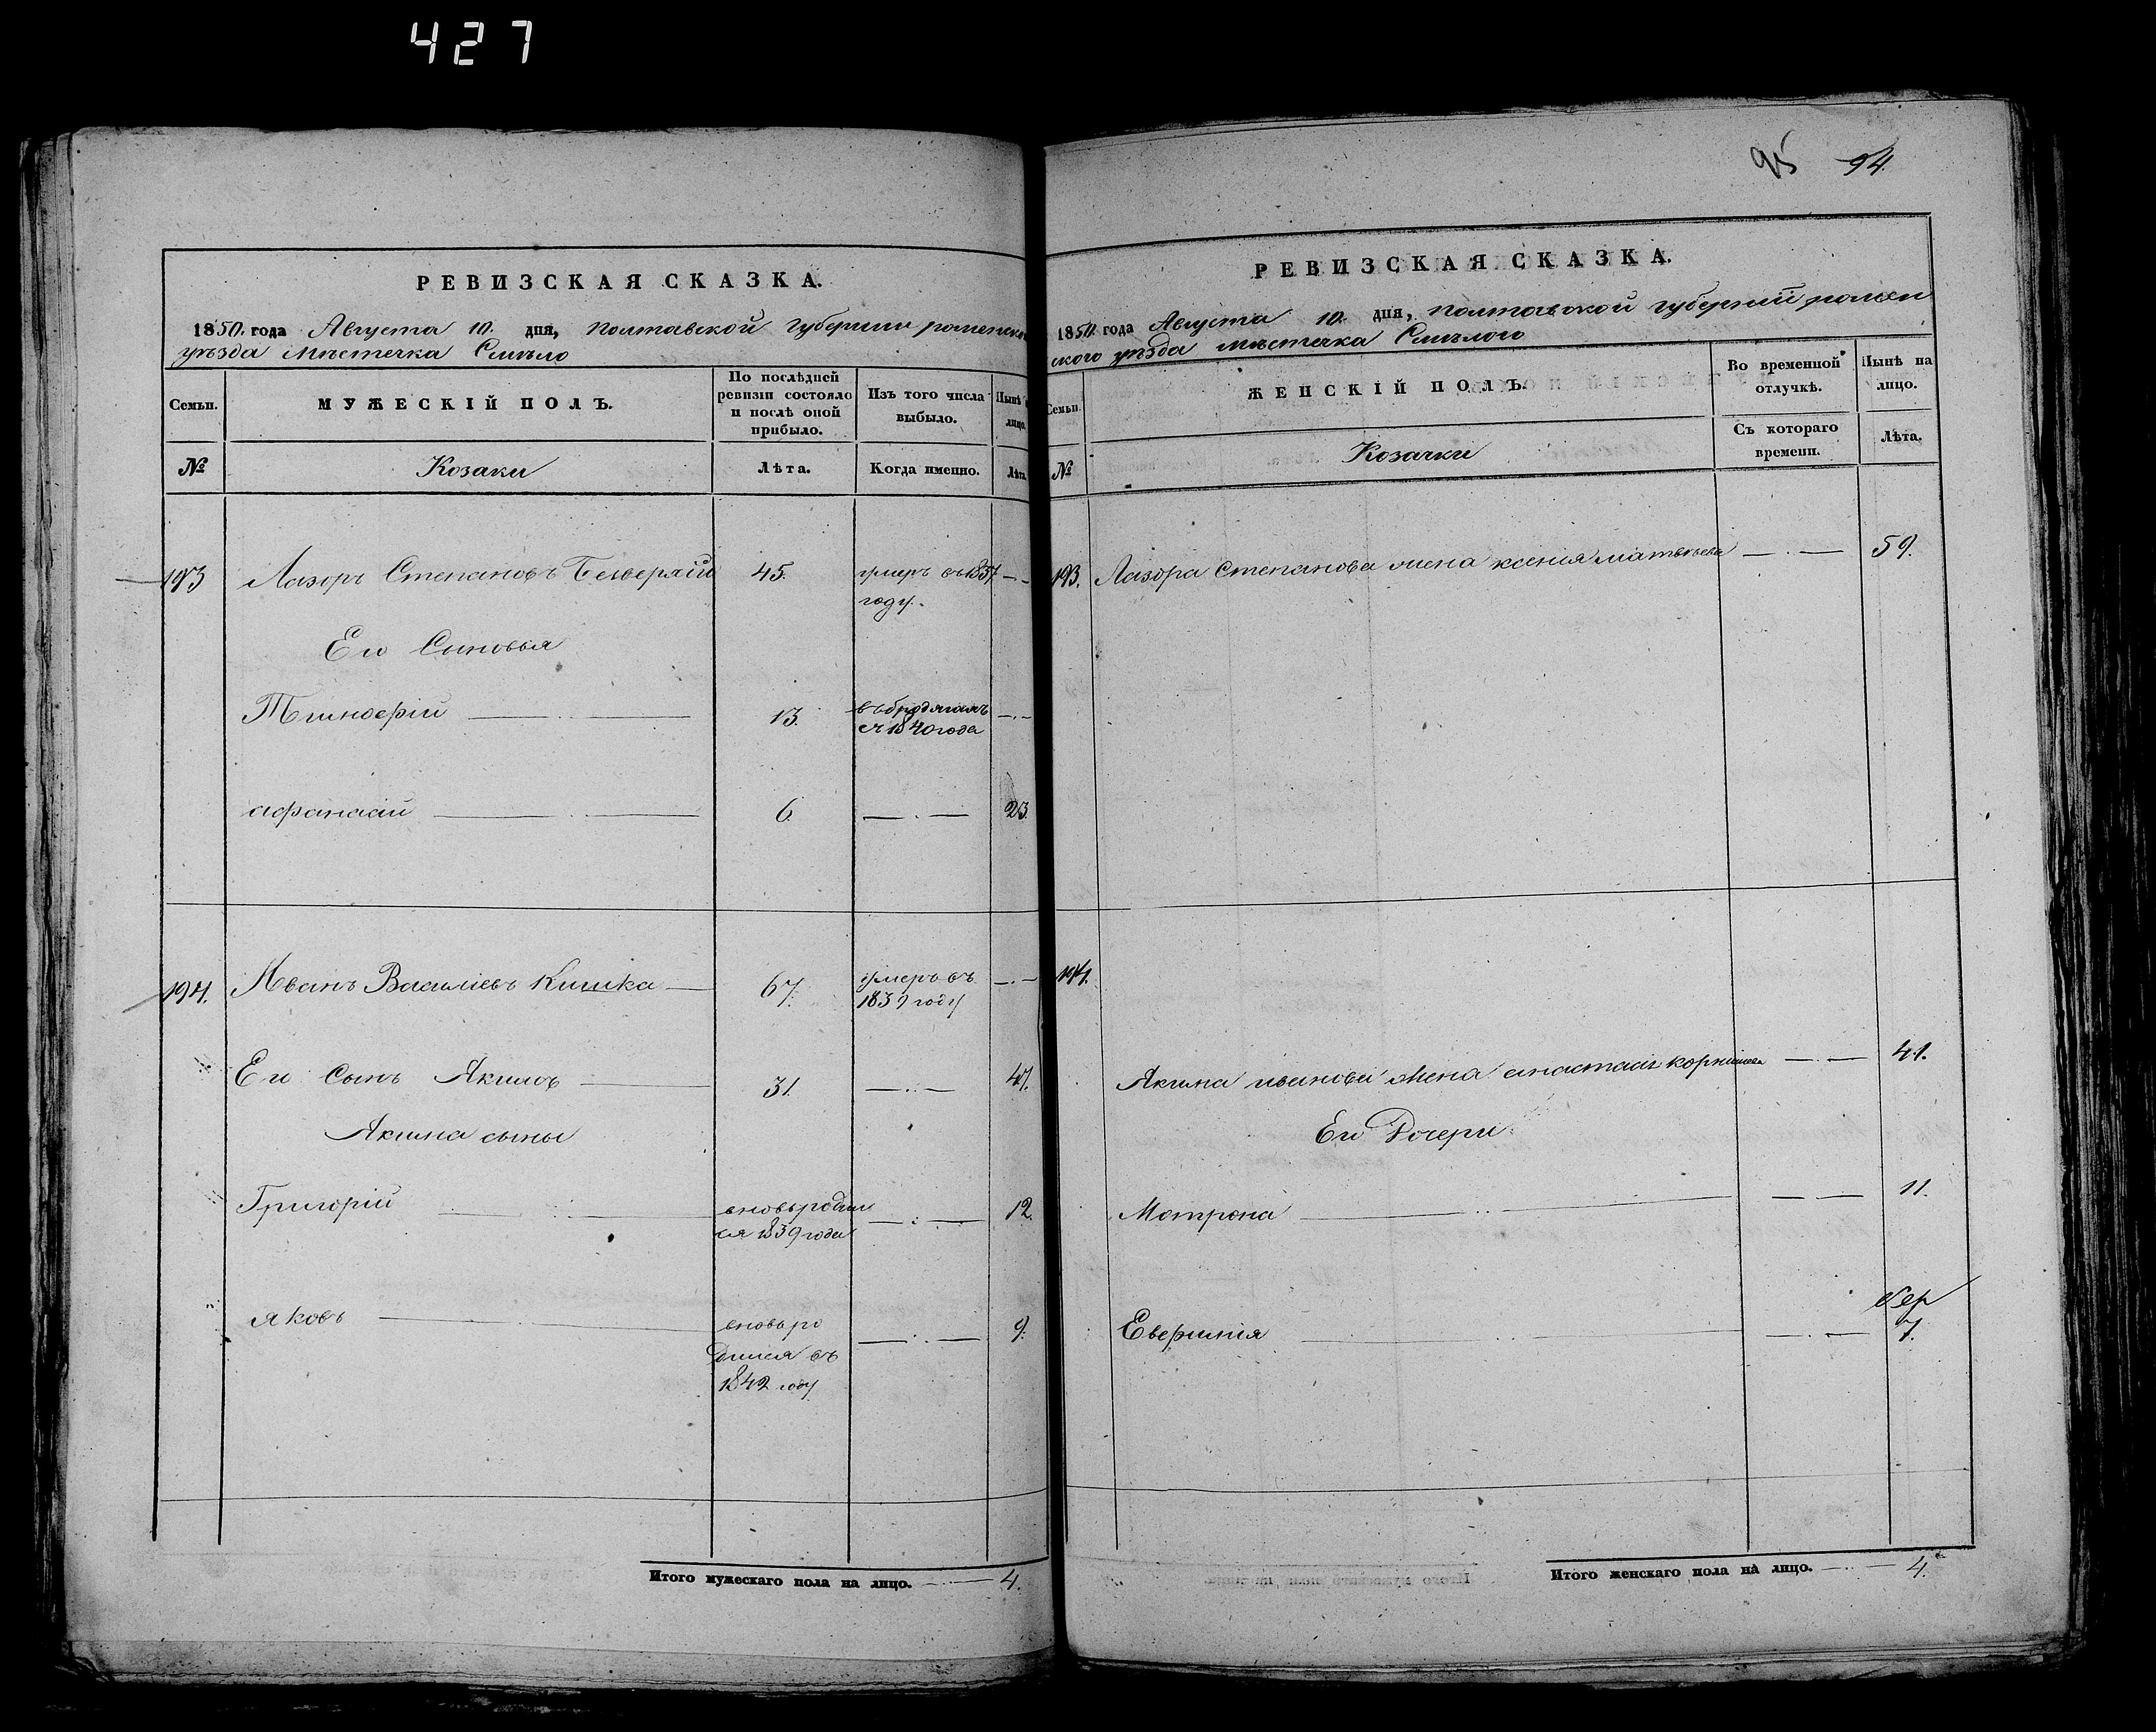 427
РЕВИЗСКАЯ СКАЗКА.
1850. года Августа 10. дня, Полтавской губернии роменска
уѣзда мѣстечка Смѣло
Семьи.
МУЖЕСКІЙ ПОЛЪ.
По послѣдней
ревизіи состояло
и послѣ оной
прибыло.
Изъ того числа
выбыло.
Нынѣ
лицо.
№
Козаки
Лѣта.
Когда именно.
Лѣта
193
Лазоръ Степановъ
45.
умеръ въ 1837
году.
Его Сыновья
13.
1840 года
афанасій
6.
23.
194.
Иванъ Василіевъ Кишка
67.
умеръ въ
1839 году
Его Сынъ Якимъ
31.
47.
Якима сыны
Григорій
вновь родил
ся 1839 года
12.
яковъ
вновь ро
дился въ
1842 году
9.
Итого мужескаго пола на лицо.
4.
95 94.
РЕВИЗСКАЯ СКАЗКА.
1850 года Августа 10. дня, полтавской губерніи ромен
ского уѣзда мѣстечка Смѣлого
Семьи.
ЖЕНСКІЙ ПОЛЪ.
Во временной
отлучкѣ.
Нынѣ на
лицо.
№
Козачки
Съ котораго
времени.
Лѣта.
193.
Лазора Степанова жена ксенія матвѣева
59.
194.
Якима иванова жена анастасія
41.
Ей Дочери
Мотрона
11.
7.
Итого женскаго пола на лицо.
4.